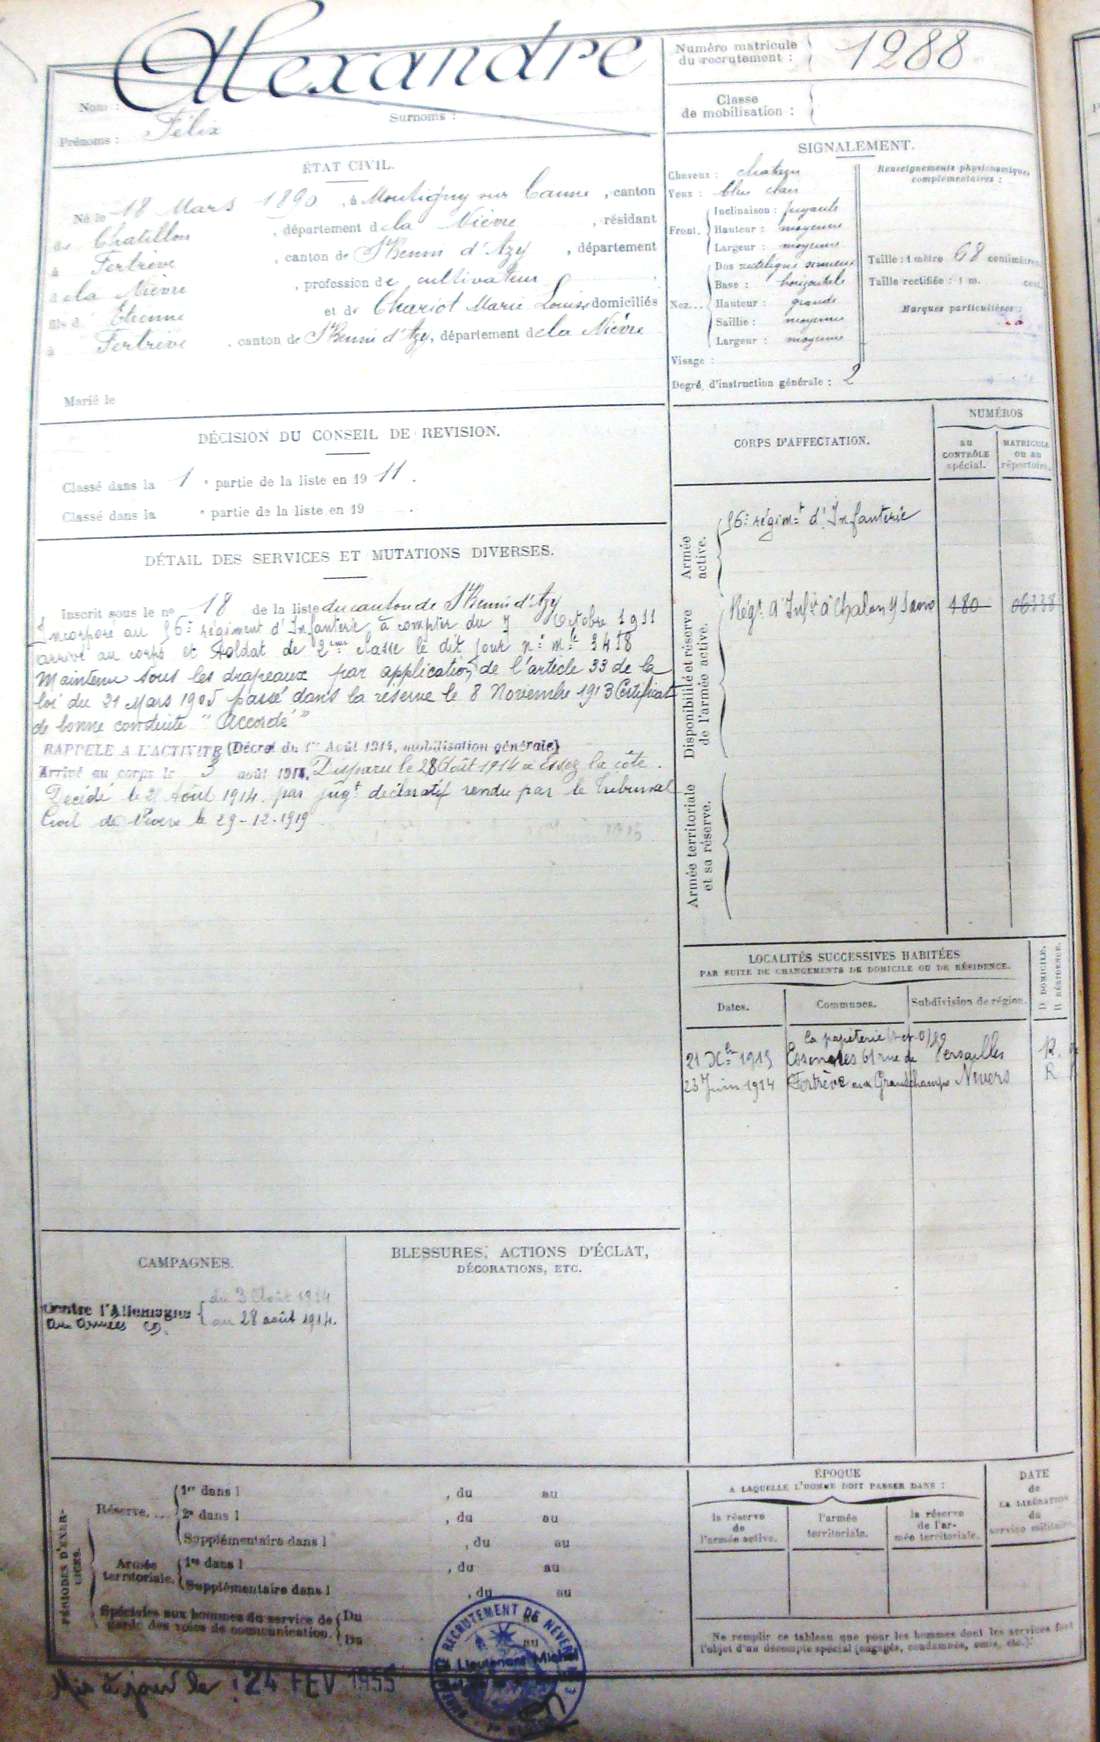 Alexandre
Nom :
Prénoms : Félix
Surnoms :
Numéro matricule du recrutement : 1288
Classe de mobilisation :
ÉTAT CIVIL.
Né le 18 Mars 1890, à Montigny sur Canne, canton
de Chatillon, département de la Nièvre, résidant
à Fertrève, canton de St Benin d'Azy, département
de la Nièvre, profession de cultivateur
fils d Etienne et de Chariot Marie Louise domiciliés
à Fertrève, canton de St Benin d'Azy, département de la Nièvre
Marié le
SIGNALEMENT.
Cheveux : chatain
Yeux : bleu clair
Front. Inclinaison : fuyante
Hauteur : moyenne
Largeur : moyenne
Nez... Dos rectiligne sinueux
Base : horizontale
Hauteur : grande
Saillie : moyenne
Largeur : moyenne
Visage :
Degré d'instruction générale : 2
Renseignements physionomiques complémentaires :
Taille : 1 mètre 68 centimètres.
Taille rectifiée : 1 m. cent.
Marques particulières :
DÉCISION DU CONSEIL DE REVISION.
Classé dans la 1 e partie de la liste en 1911.
Classé dans la e partie de la liste en 19 .
DÉTAIL DES SERVICES ET MUTATIONS DIVERSES.
Inscrit sous le n° 18 de la liste du canton de St Benin d'Azy
Incorporé au 56e régiment d'Infanterie à compter du 7 Octobre 1911
arrivé au corps et soldat de 2eme classe le dit jour n° mle 3458
Maintenu sous les drapeaux par application de l'article 33 de la
loi du 21 Mars 1905 passé dans la réserve le 8 Novembre 1913 Certificat
de bonne conduite "Accordé"
RAPPELÉ A L'ACTIVITÉ (Décret du 1er Août 1914, mobilisation générale)
Arrivé au corps le 3 août 1914, Disparu le 28 Août 1914 à Essez la côte.
Décidé le 28 Août 1914 par jugt déclaratif rendu par le Tribunal
Civil de le 29-12-1919
CORPS D'AFFECTATION.
NUMÉROS
AU CONTRÔLE spécial.
MATRICULE ou au répertoire.
Armée active.
56e régimt d'Infanterie
Disponibilité et réserve de l'armée active.
Régt d'Infie à Chalon s/ Saône 480 06338
Armée territoriale et sa réserve.
LOCALITÉS SUCCESSIVES HABITÉES
PAR SUITE DE CHANGEMENTS DE DOMICILE OU DE RÉSIDENCE.
Dates.
Communes.
Subdivision de région.
D DOMICILE.
R RÉSIDENCE.
la papeterie
21 Xbre 1913 Essonnes 61 rue de Versailles R.
23 Juin 1914 Fertrève aux Grandschamps Nevers R
CAMPAGNES.
Contre l'Allemagne
aux armées
du 3 Août 1914
au 28 août 1914.
BLESSURES, ACTIONS D'ÉCLAT,
DÉCORATIONS, ETC.
PÉRIODES D'EXERCICES.
Réserve....
1re dans l , du au
2e dans l , du au
Supplémentaire dans l , du au
Armée territoriale.
1re dans l , du au
Supplémentaire dans l , du au
Spéciales aux hommes du service de garde des voies de communication.
Du au
Du au
ÉPOQUE
A LAQUELLE L'HOMME DOIT PASSER DANS :
la réserve de l'armée active.
l'armée territoriale.
la réserve de l'armée territoriale.
DATE de LA LIBÉRATION du service militaire.
Ne remplir ce tableau que pour les hommes dont les services font
l'objet d'un décompte spécial (engagés, condamnés, omis, etc.).
Mis à jour le : 24 FEV 1955
RECRUTEMENT DE NEVERS
Lieutenant Michel